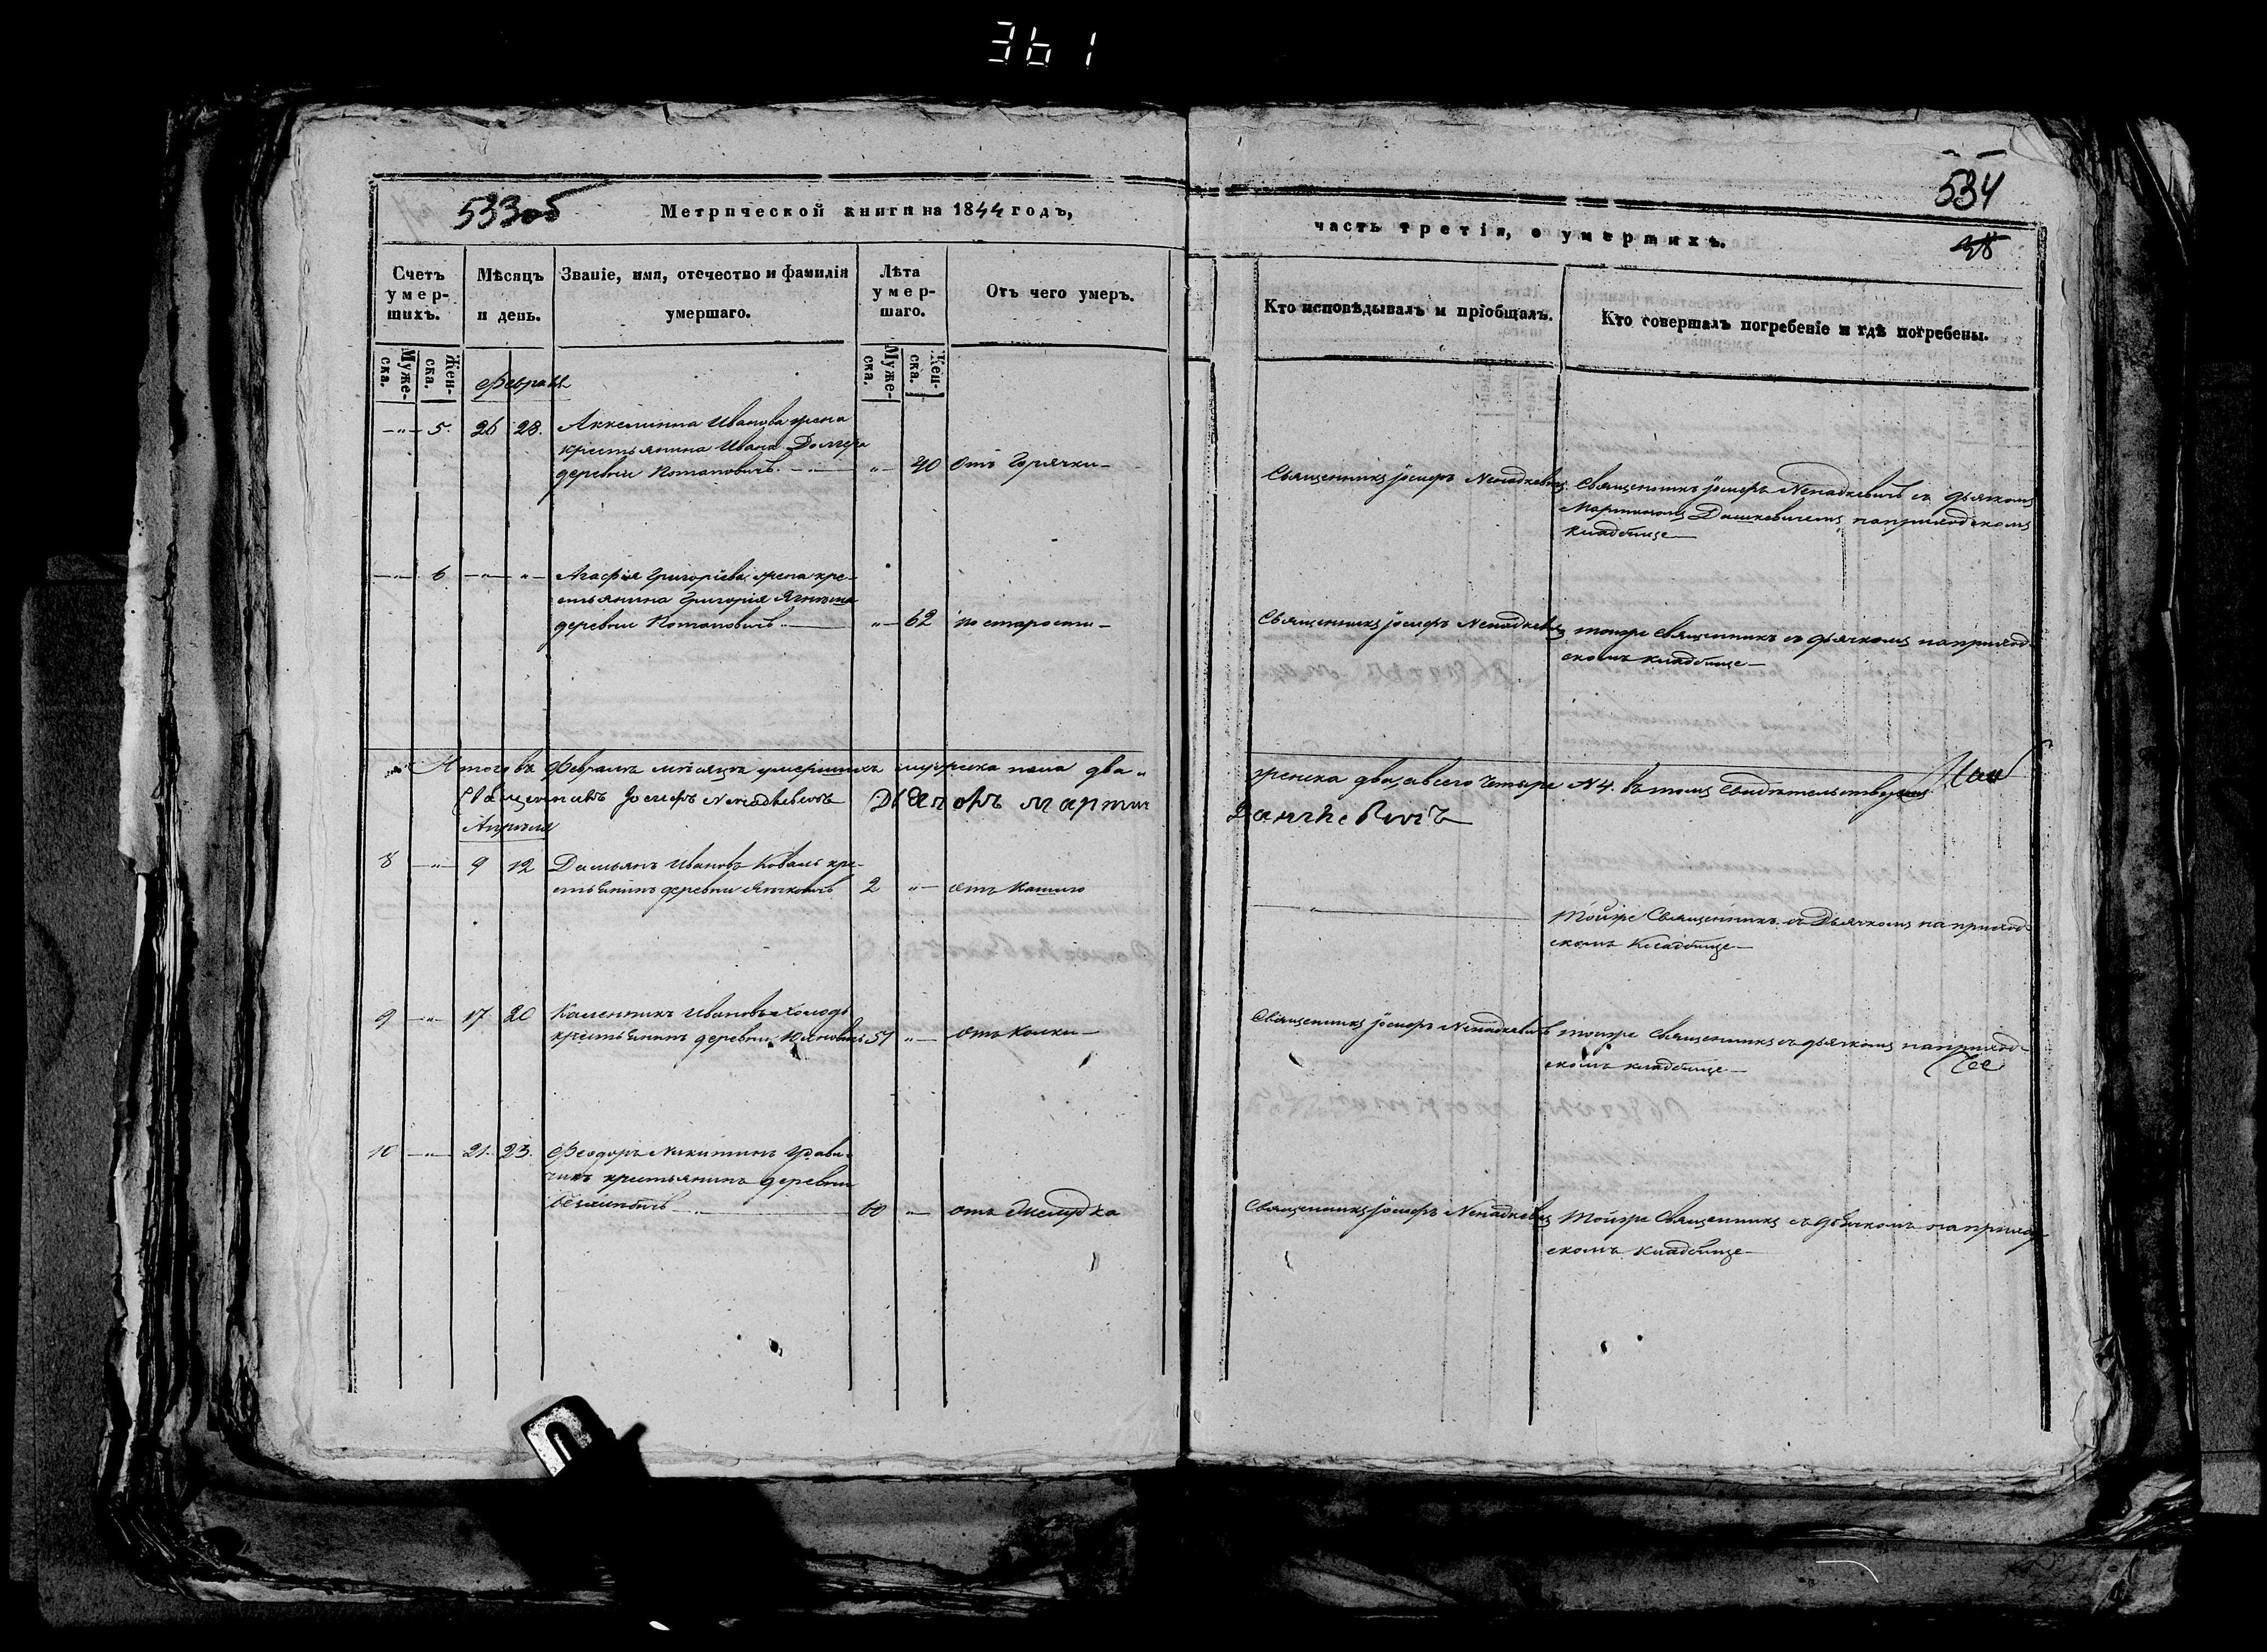 361
533об
Метрической книги на 1844 годъ,
Счетъ умер-
шихъ.
Мѣсяцъ
и день.
Званіе, имя, отечество и фамилія
умершаго.
Лѣта
умер-
шаго.
Отъ чего умеръ.
Муже-
ска.
Жен-
ска.
Муже-
ска.
Жен-
ска.
Февраля
5. 26 28. Иванова жена
крестьянина Ивана
деревни Потаповичъ 40 Отъ Горячки
6 Агафія Григоріева жена кре-
стьянина Григорія
деревни Потаповичъ 62 по старости
Итого въ Февралѣ мѣсяцѣ умершихъ мужеска пола два
Священникъ Іосифъ Ненадкевичъ Дьячокъ Мартин
Апрѣля
8 9 12 Дамьянъ Ивановъ Коваль кре-
стьянинъ деревни 2 отъ Кашлю
9 17 20 Каленникъ Ивановъ Холодъ
крестьянинъ деревни отъ
10 21. 23. Феодоръ Никитинъ
крестьянинъ деревни
60 отъ
534
38
часть третія, о умершихъ.
Кто исповѣдывалъ и пріобщалъ.
Кто совершалъ погребеніе и гдѣ погребены.
Священникъ Іосифъ Ненадкевичъ Священникъ Іосифъ Ненадкевичъ съ дьячкомъ
Мартиномъ Дашкевичемъ на приходскомъ
кладбище
Священникъ Іосифъ Ненадкевичъ тойже Священникъ съ дьячкомъ на приход-
скомъ кладбище
женска два, а всего четыре N 4. въ томъ свидѣтельствуемъ
Тойже Священникъ съ Дьячкомъ на приход-
скомъ Кладбище
Священникъ Іосифъ Ненадкевичъ тойже Священникъ съ дьячкомъ на приход-
скомъ кладбище
Священникъ Іосифъ Ненадкевичъ Тойже Священникъ съ дьячкомъ на приход-
скомъ Кладбище